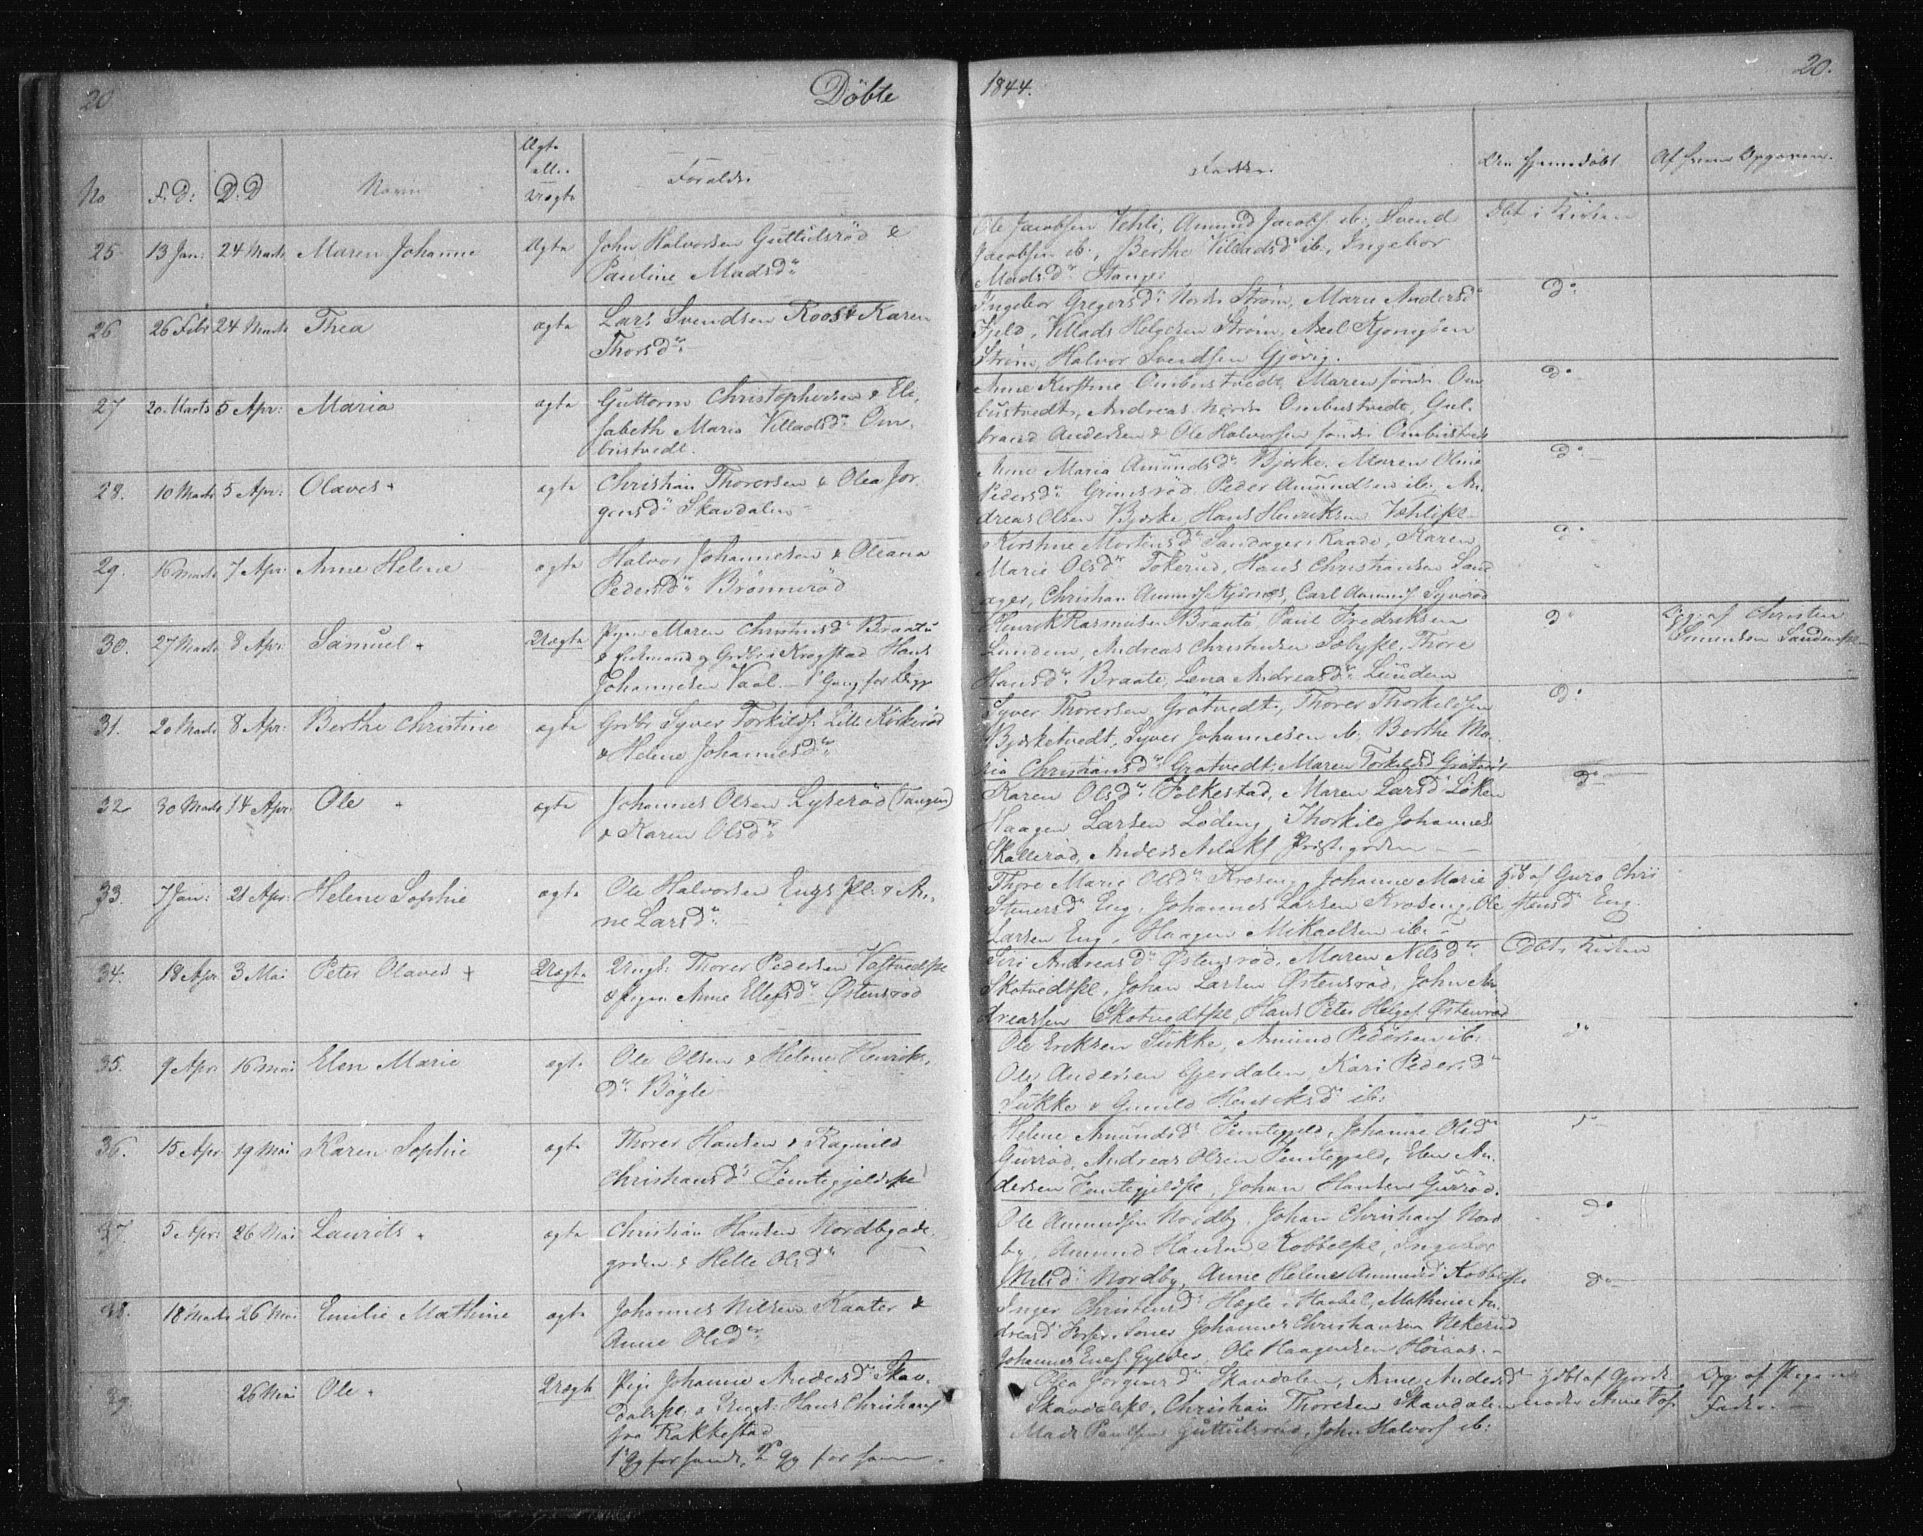 20 Döbte 1844. 20.
No F. D: D. D Navn Ægte eller Uægte Forældre Faddere Om hjemmedöbt Af hvem Opgaven
25 13 Jan: 24 Marts Maren Johanne ægte John Halvorsen Guttulsröd &
Pauline Madsdr
Ole Jacobsen Vehli, Amund Jacobs. ib:, Svend
Jacobsen ib:, Berthe Villadsdr ib:, Ingebor
Madsdr Stange
Dbt i Kirken
26 26 Febr 24 Marts Thea ægte Lars Svendsen Roos & Karen
Thorsdr
Ingebor Gregersdr Nordre Ström, Marie Andersdr
Fjeld, Villads Helgesen Ström, Axel
Ström, Halvor Svendsen Gjövig.
Do
27 20 Marts 5 Apr: Maria ægte Guttorm Christophersen & Eli-
sabeth Maria Villadsdr Om-
bustvedt.
Anne Kirstine Ombustvedt, Maren söndre Om
bustvedt, Andreas Nordre Ombustvedt, Gul-
brand Andersen & Ole Halvorsen söndre Ombustvedt
Do
28. 10 Marts 5 Apr: Olaves ægte Christian Thorersen & Olea Jör-
gensdr Skavdalen
Anne Maria Amundsdr Bjerke, Maren Oline
Pedersdr Grimsröd Peder Amundsen ib:, An-
dreas Olsen Bjerke, Hans Henriksen Væhlipl.
Do
29. 16 Marts 7 Apr: Anne Helene ægte Halvor Johannesen & Oleana
Pedersdr Brönneröd
Kirstine Mortensdr Sandager i Raade, Karen
Marie Olsdr Tokerud, Hans Christiansen Sand
ager, Christian Amunds. Kjörnes, Carl Amunds. Syveröd
Do
30. 27 Marts 8 Apr: Samuel Uægte Pigen Maren Christensdr Braatu
& Enkemand og Grdbr i Krogstad Hans
Johannesen Vaal 1' Gang for begge
Henrik Rasmusen Braatu, Paul Fredriksen
Lunden, Andreas Christensen Sæbypl, Thore
Hansdr Braate, Lena Andreasdr Lunden
Do
Opg: af Christen
Simensen Sandenpl.
31. 20 Marts 8 Apr: Berthe Christine ægte Grdbr Syver Torkilds. Lille Kirkeröd
& Helene Johannesdr
Syver Thorersen Grötvedt, Thorer Thorkildsen
Bjerketvedt, Syver Johannesen ib. Berthe Ma-
ria Christiansdr Grötvedt, Maren Torkildsdr Grötvedt
Do
32 30 Marts 14 Apr: Ole ægte Johannes Olsen Lyseröd (Tangen)
& Karen Olsdr
Karen Olsdr Folkestad, Maren Larsdr Löken
Haagen Larsen Löding, Thorkild Johannes
Skalleröd, Anders Præstegorden
Do
33. 7 Jan: 21 Apr: Helene Sophie ægte Ole Halvorsen Engs Pl: & An-
ne Larsdr
Thore Marie Olsdr Kroseng, Johanne Marie
Stenersdr Eng, Johannes Larsen Kroseng, Ole
Larsen Eng, Haagen Mikaelsen ib:
Hjd af Guro Chri
stensdr Eng.
34. 18 Apr 3 Mai Peter Olaves Uægte Ungk: Thorer Pedersen Vastvedtpl
& Pigen Anne Ellefsdr Östensröd
Siri Andreasdr Östensröd, Maren Nilsdr
Skotvedtpl, Johan Larsen Östensröd, John An
dreassen Skotvedtpl, Hans Peter Helges. Östenröd
Döbt i Kirken
35. 9 Apr 16 Mai Elen Marie ægte Ole Olsen & Helene Henriks-
Dr Bögle
Ole Eriksen Sukke, Amund Pedersen ib:
Ole Andersen Gjerdalen, Kari Pedersdr
Sukke & Gunild Henriksdr ib:
Do
36. 15 Apr 19 Mai Karen Sophie ægte Thorer Hansen & Ragnild
Christiansdr Femtegjeldspl
Helene Amundsdr Femtegjeld, Johanne Olsdr
Gurröd, Andreas Olsen Femtegjeld, Elen An-
dersen Femtegjeldpl, Johan Hansen Gurröd.
Do
37. 5 Apr: 26 Mai Laurits ægte Christian Hansen Nordbyöde-
gorden & Helle Olsdr
Ole Amundsen Nordby, Johan Christians. Nord
by, Amund Hansen Kobbelpl, Ingebor
Nilsdr Nordby, Anne Helene Amundsdr Kobbelpl
Do
38. 18 Marts 26 Mai Emilie Mathine ægte Johannes Nilsen Kaater &
Anne Olsdr
Inger Christensdr Hægle i Haabel, Mathine An
dreasdr Soner Johannes Christiansen Ekerud
Johannes Gylder, Ole Haagensen Höiaas.
Do
39 26 Mai Ole Uægte Pige Johanne Andersdr Skav-
dalspl. & Ungk: Hans Christians.
fra Rakkestad
1ste Gg for hende, 2n Gg for ham.
Olea Jörgensdr Skavdalen, Anne Andersdr
Skavdalspl, Christian Thoresen Skavdalen
Mads Paulsen Guttulsröd, John Halvors. ib:
Hjdbt af Gjord-
moder Anne
Opg. af Pigens
Fader.